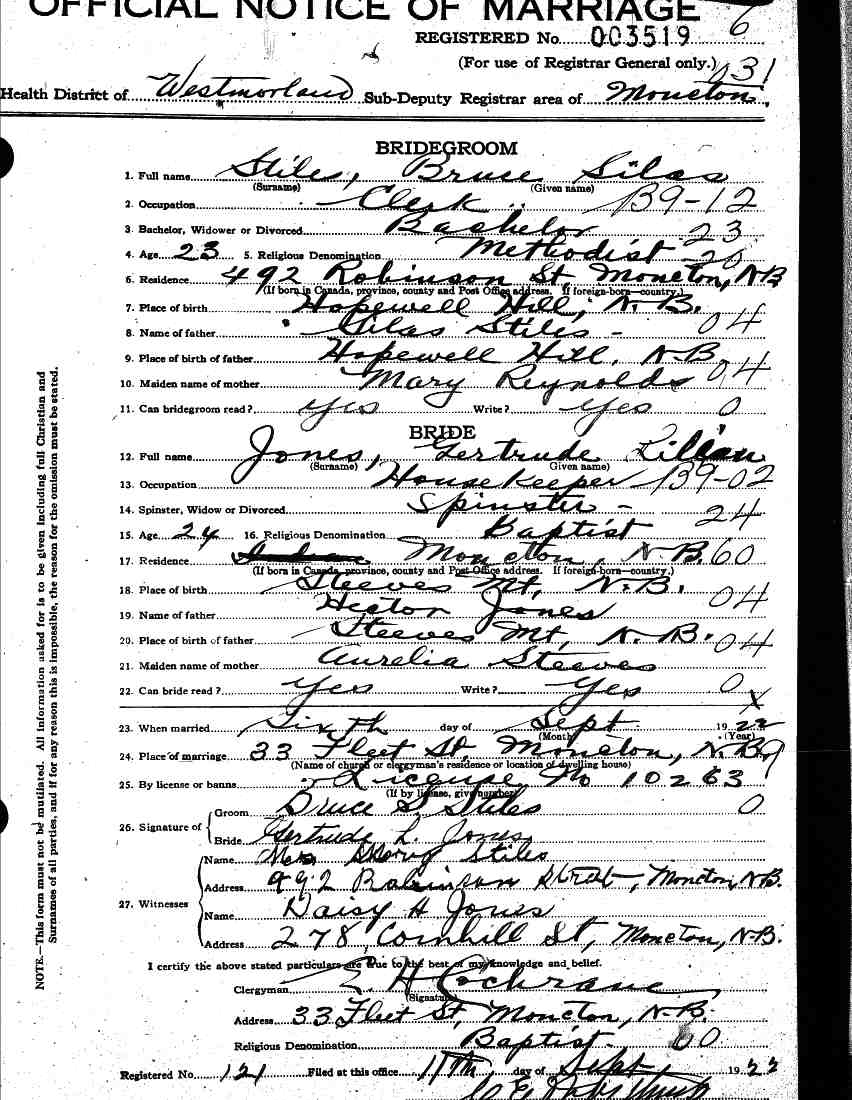 OFFICIAL NOTICE OF MARRIAGE
6
REGISTERED No. 003519
(For use of Registrar General only.) 031
Health District of Westmorland Sub-Deputy Registrar area of Moncton
BRIDEGROOM
1. Full name Stiles, Bruce Silas
(Surname) (Given name)
2. Occupation Clerk 139-12
3. Bachelor, Widower or Divorced Bachelor 23
4. Age 23 5. Religious Denomination Methodist 20
6. Residence 492 Robinson St Moncton, NB
(If born in Canada, province, county and Post Office address. If foreign-born—country.)
7. Place of birth Hopewell Hill, N.B. 04
8. Name of father Silas Stiles -
9. Place of birth of father Hopewell Hill, N-B 04
10. Maiden name of mother Mary Reynolds
11. Can bridegroom read? Yes Write? Yes 0
BRIDE
12. Full name Jones, Gertrude Lilian
(Surname) Given name)
13. Occupation Housekeeper 139-02
14. Spinster, Widow or Divorced Spinster - 24
15. Age 24 16. Religious Denomination Baptist
17. Residence Moncton, N-B. 60
(If born in Canada, province, county and Post Office address. If foreign-born—country.)
18. Place of birth Steeves Mt, N.B. 04
19. Name of father Hector Jones
20. Place of birth of father Steeves Mt, N.B. 04
21. Maiden name of mother Aurelia Steeves
22. Can bride read? Yes Write? Yes 0
X
23. When married Sixth day of Sept 1922
(Month) (Year)
24. Place of marriage 33 Fleet St, Moncton, N.B. 9
(Name of church or clergyman's residence or location of dwelling house)
25. By license or banns License No 10263
(If by license, give number)
26. Signature of Groom Bruce S. Stiles 0
Bride Gertrude L. Jones
27. Witnesses Name Mrs Stiles
Address 492 Robinson Street, Moncton, N.B.
Name Daisy H Jones
Address 278 Cornhill St, Moncton, N-B.
I certify the above stated particulars are true to the best of my knowledge and belief.
Clergyman E. H Cochrane
(Signature)
Address 33 Fleet St, Moncton, N-B.
Religious Denomination Baptist 60
Registered No. 121 Filed at this office 11th day of Sept 1922
NOTE.—This form must not be mutilated. All information asked for is to be given including full Christian and
Surnames of all parties, and if for any reason this is impossible, the reason for the omission must be stated.